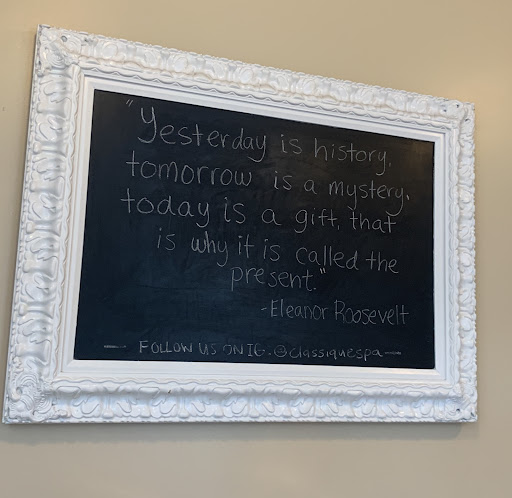 "Yesterday is history,
tomorrow is a mystery,
today is a gift, that
is why it is called the
present."
-Eleanor Roosevelt
FOLLOW US ON IG: @classiquespa